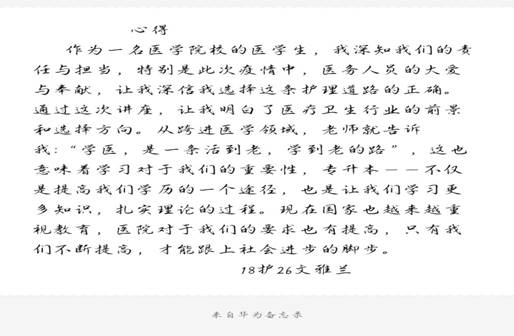 心得
作为一名医学院校的医学生，我深知我们的责
任与担当，特别是此次疫情中，医务人员的大爱
与奉献，让我深信我选择这条护理道路的正确。
通过这次讲座，让我明白了医疗卫生行业的前景
和选择方向。从跨进医学领域，老师就告诉
我：“学医，是一条活到老，学到老的路”，这也
意味着学习对于我们的重要性，专升本——不仅
是提高我们学历的一个途径，也是让我们学习更
多知识，扎实理论的过程。现在国家也越来越重
视教育，医院对于我们的要求也有提高，只有我
们不断提高，才能跟上社会进步的脚步。
18护26文雅兰
来自华为备忘录